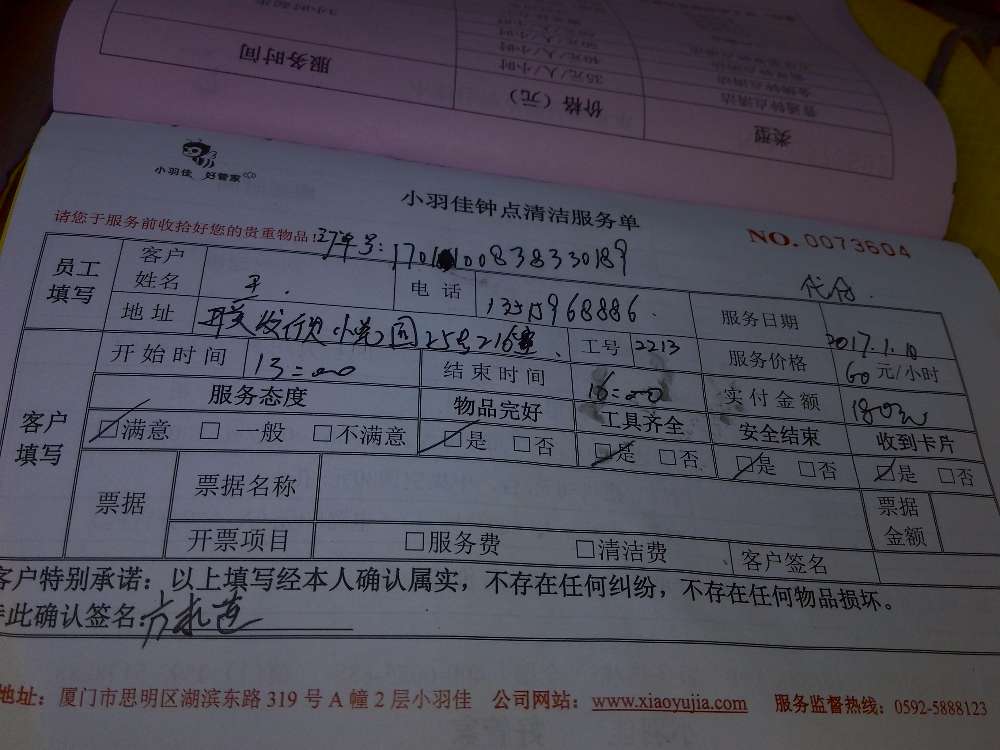 服务时间
价格（元）
类型
35元/人/小时
普通钟点清洁
40元/人/小时
小羽佳 好管家
小羽佳钟点清洁服务单
请您于服务前收拾好您的贵重物品！
NO. 0073504
员工填写
客户姓名
王
电话
968886
服务日期
2017.1.
地址
25号216室
工号
2213
服务价格
60元/小时
客户填写
开始时间
13:00
结束时间
16:00
实付金额
180元
服务态度
物品完好
工具齐全
安全结束
收到卡片
☑满意 □ 一般 □不满意
☑是 □否
☑是 □否
☑是 □否
☑是 □否
票据
票据名称
票据金额
开票项目
□服务费 □清洁费
客户签名
客户特别承诺：以上填写经本人确认属实，不存在任何纠纷，不存在任何物品损坏。
此确认签名:
地址：厦门市思明区湖滨东路 319 号 A 幢 2 层小羽佳 公司网站：www.xiaoyujia.com 服务监督热线：0592-5888123